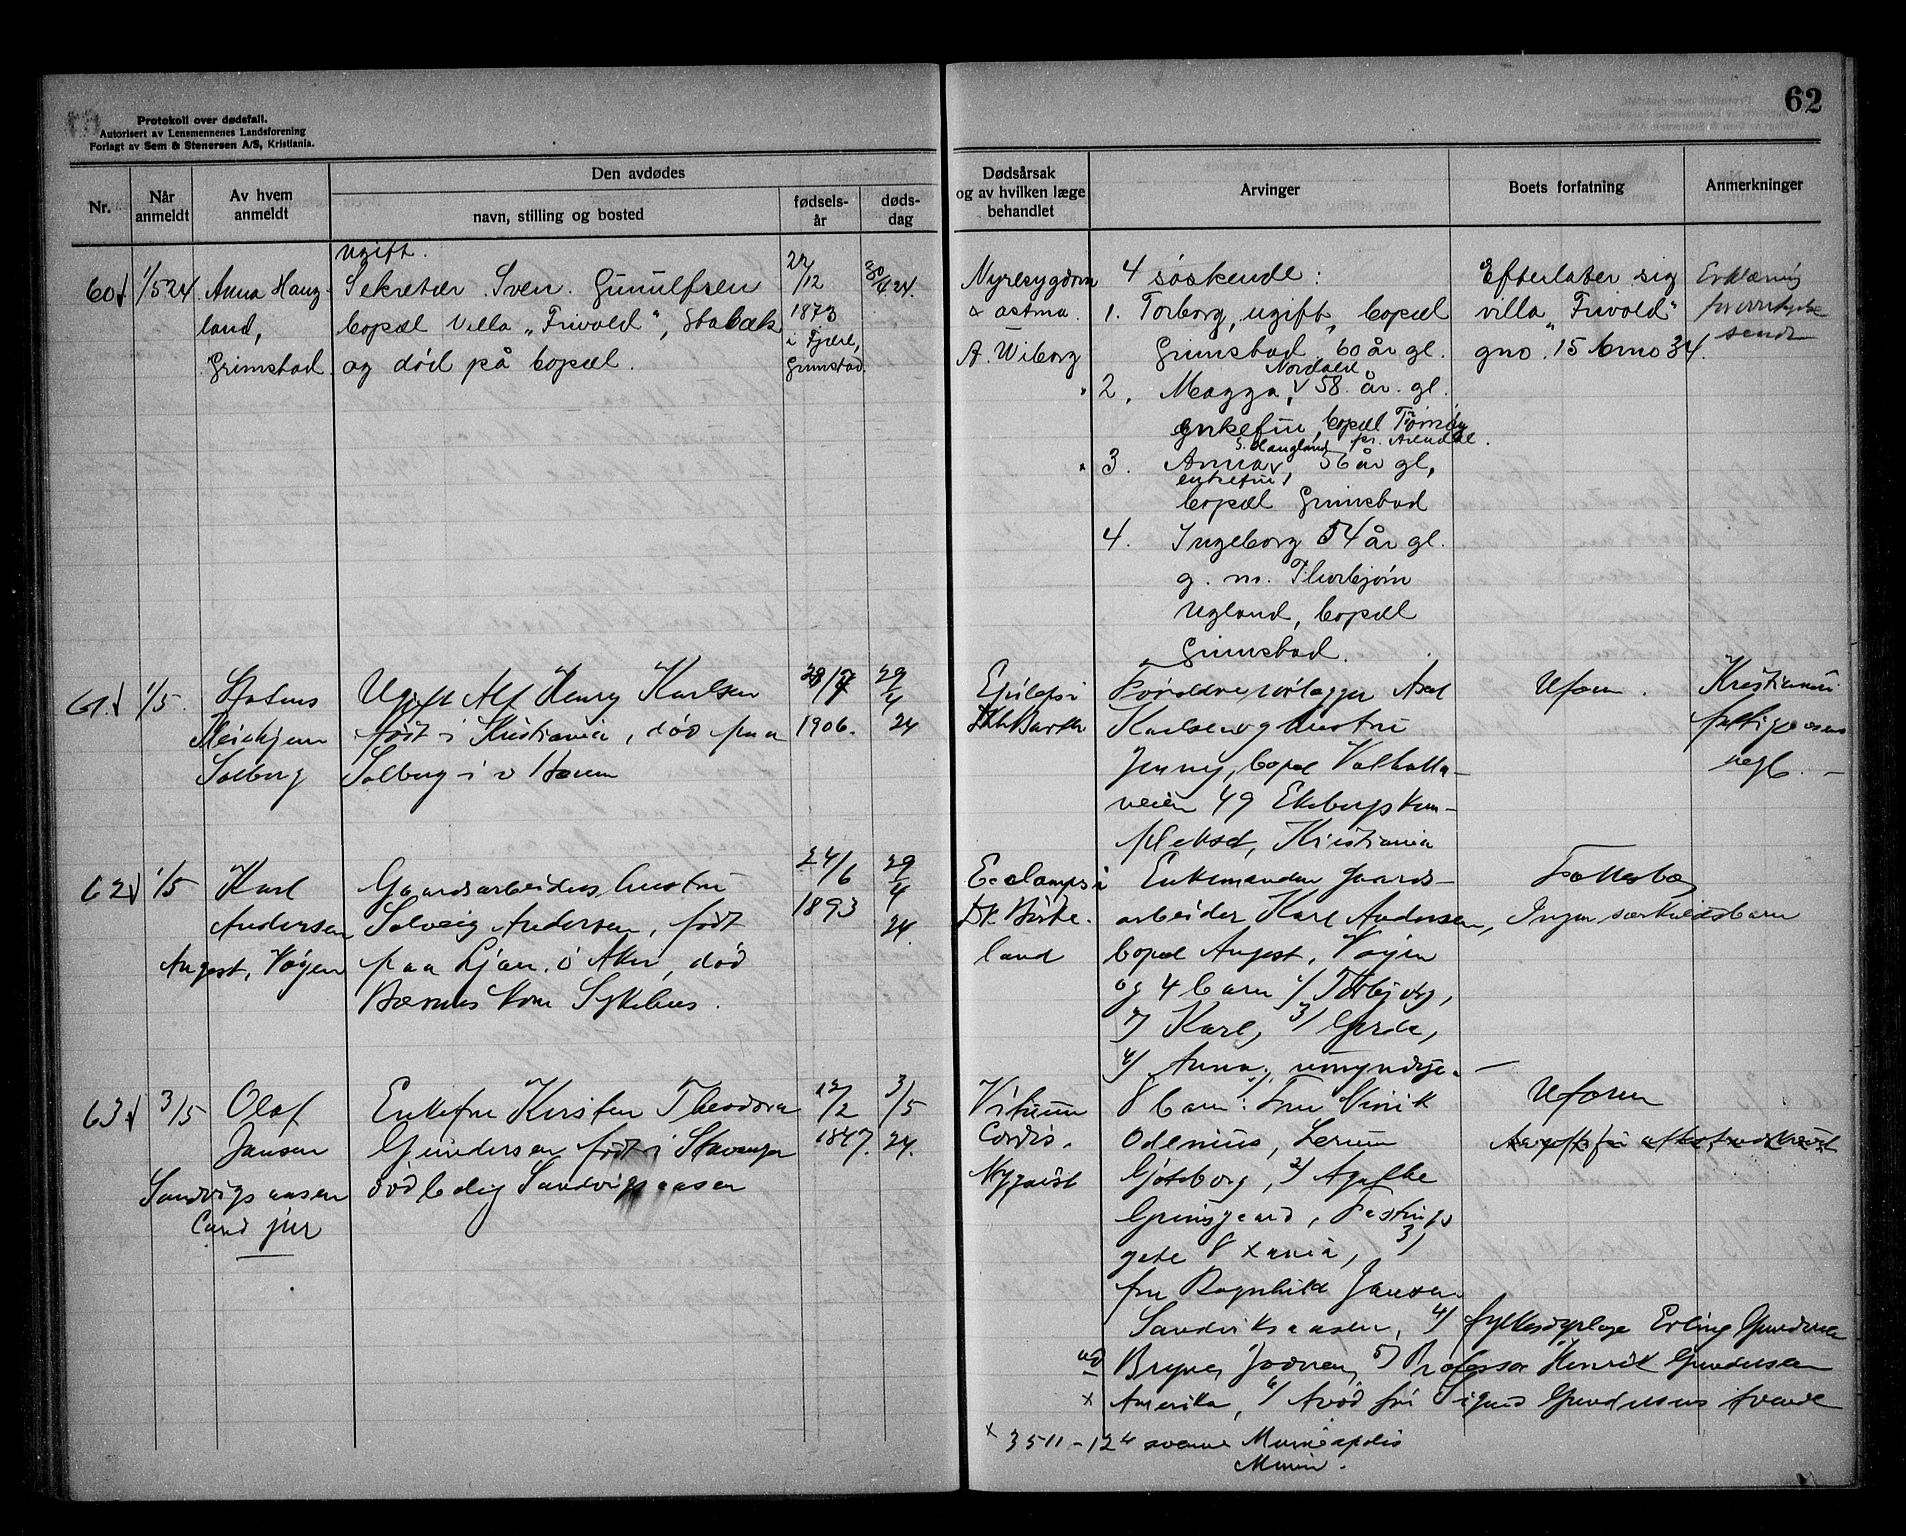 62
Protokoll over dødsfall.
Autorisert av Lensmennenes Landsforening
Forlagt av Sem & Stenersen A/S, Kristiania.
Nr.
Når anmeldt
Av hvem anmeldt
Den avdødes
navn, stilling og bosted
fødsels-år
døds-dag
Dødsårsak og av hvilken læge behandlet
Arvinger
Boets forfatning
Anmerkninger
60
1/5 24
Anna Haug-
land,
Grimstad
Ugift.
Sekretær Sven Gunulfsen
bopæl Villa "Frivold", Stabæk
og død på bopæl.
22/12
1873
i Fjære,
Grimstad.
30/4 24.
Nyresygdom
& astma.
A. Wiborg
4 søskende:
1. Torborg, ugift, bopæl
Grimstad 60 år gl.
Nordahl
2. Magga, 58 år gl.
enkefru, bopæl Tromøy
pr. Arendal.
G. Haugland
3. Anna 56 år gl,
enkefru
bopæl Grimstad
4. Ingeborg 54 år gl.
g. m. Thorbjørn
Ugland, bopæl
Grimstad.
Efterlater sig
villa "Frivold"
gno. 15 bno 34.
Erklæring
sendt
61.
1/5.
Statens
Pleiehjem
Solberg
Ugift Alf Henry Karlsen
født i Kristiania, død paa
Solberg i ø Bærum
28/7
1906.
29/4
24
Epilepsi
Barth
Forældre Axel
Karlsen og hustru
Jenny, bopæl Valhalla-
veien 49 Ekebergkom-
plekset, Kristiania
Uform.
Kristiania
fattigvæsen
62
1/5
Karl
Andersen
Angest, Vøyen
Gaardsarbeiders hustru
Solveig Andersen, født
paa Ljan i Aker, død
Bærums kom Sykehus.
24/6
1893
29/4
24.
Eclampsi
Dr. Birke-
land
Enkemanden gaards-
arbeider Karl Andersen,
bopæl Angest, Vøyen
og 4 barn 1/ Torbjørg,
2/ Karl, 3/ Gerda,
4/ Anna, umyndige.
Fællesbo
Ingen særkuldsbarn
63
3/5
Olaf
Jansen
Sandvigsaasen
Cand jur
Enkefru Kirsten Theodora
Gundersen født i Stavanger
død bolig Sandvigsaasen
12/2
1847.
3/5
24.
Vitium
Cordis.
Nyquist
8 barn: 1/ Fru Vivik
Odenius, Lerum
Gøteborg, 2/ Agathe
Grimsgaard, Festnings
gate 8 Xania, 3/
fru Ragnhild Jansen
Sandviksaasen, 4/ fylkes Erling Gundersen
Bryne, Jæren, 5/ Professor Henrik Gundersen
x Amerika, 6/ Avdød Sigurd Gundersens
x 3511-12 4 avenue Minneapolis
Minn.
Uform